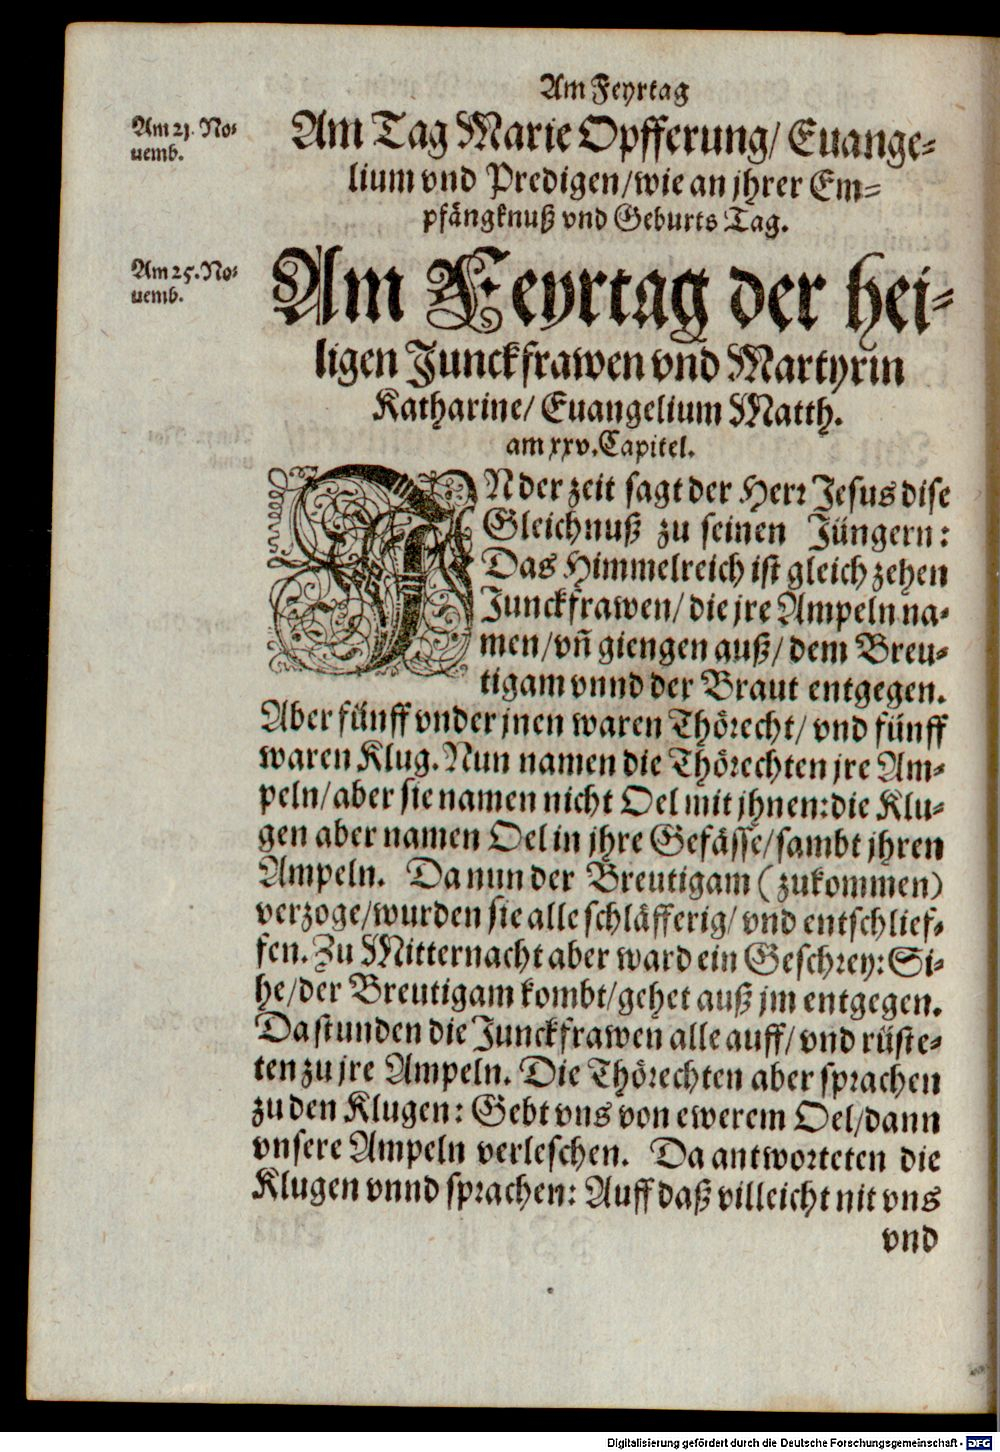 Am Feyrtag
Am 21. No-
uemb.
Am Tag Marie Opfferung/ Euange-
lium vnd Predigen/ wie an jhrer Em-
pfängknuß vnd Geburts Tag.
Am 25. No-
uemb.
Am Feyrtag der hei-
ligen Junckfrawen vnd Martyrin
Katharine/ Euangelium Matth.
am xxv. Capitel.
IN der zeit sagt der Herr Jesus dise
Gleichnuß zu seinen Jüngern:
Das Himmelreich ist gleich zehen
Junckfrawen/ die jre Ampeln na-
men/ vñ giengen auß/ dem Breu-
tigam vnnd der Braut entgegen.
Aber fünff vnder jnen waren Thörecht/ vnd fünff
waren Klug. Nun namen die Thörechten jre Am-
peln/ aber sie namen nicht Oel mit jhnen: die Klu-
gen aber namen Oel in jhre Gefässe/ sambt jhren
Ampeln. Da nun der Breutigam (zukommen)
verzoge/ wurden sie alle schläfferig/ vnd entschlief-
fen. Zu Mitternacht aber ward ein Geschrey: Si-
he/ der Breutigam kombt/ gehet auß jm entgegen.
Da stunden die Junckfrawen alle auff/ vnd rüste-
ten zu jre Ampeln. Die Thörechten aber sprachen
zu den Klugen: Gebt vns von ewerem Oel/ dann
vnsere Ampeln verleschen. Da antworteten die
Klugen vnnd sprachen: Auff daß villeicht nit vns
vnd
Digitalisierung gefördert durch die Deutsche Forschungsgemeinschaft - DFG